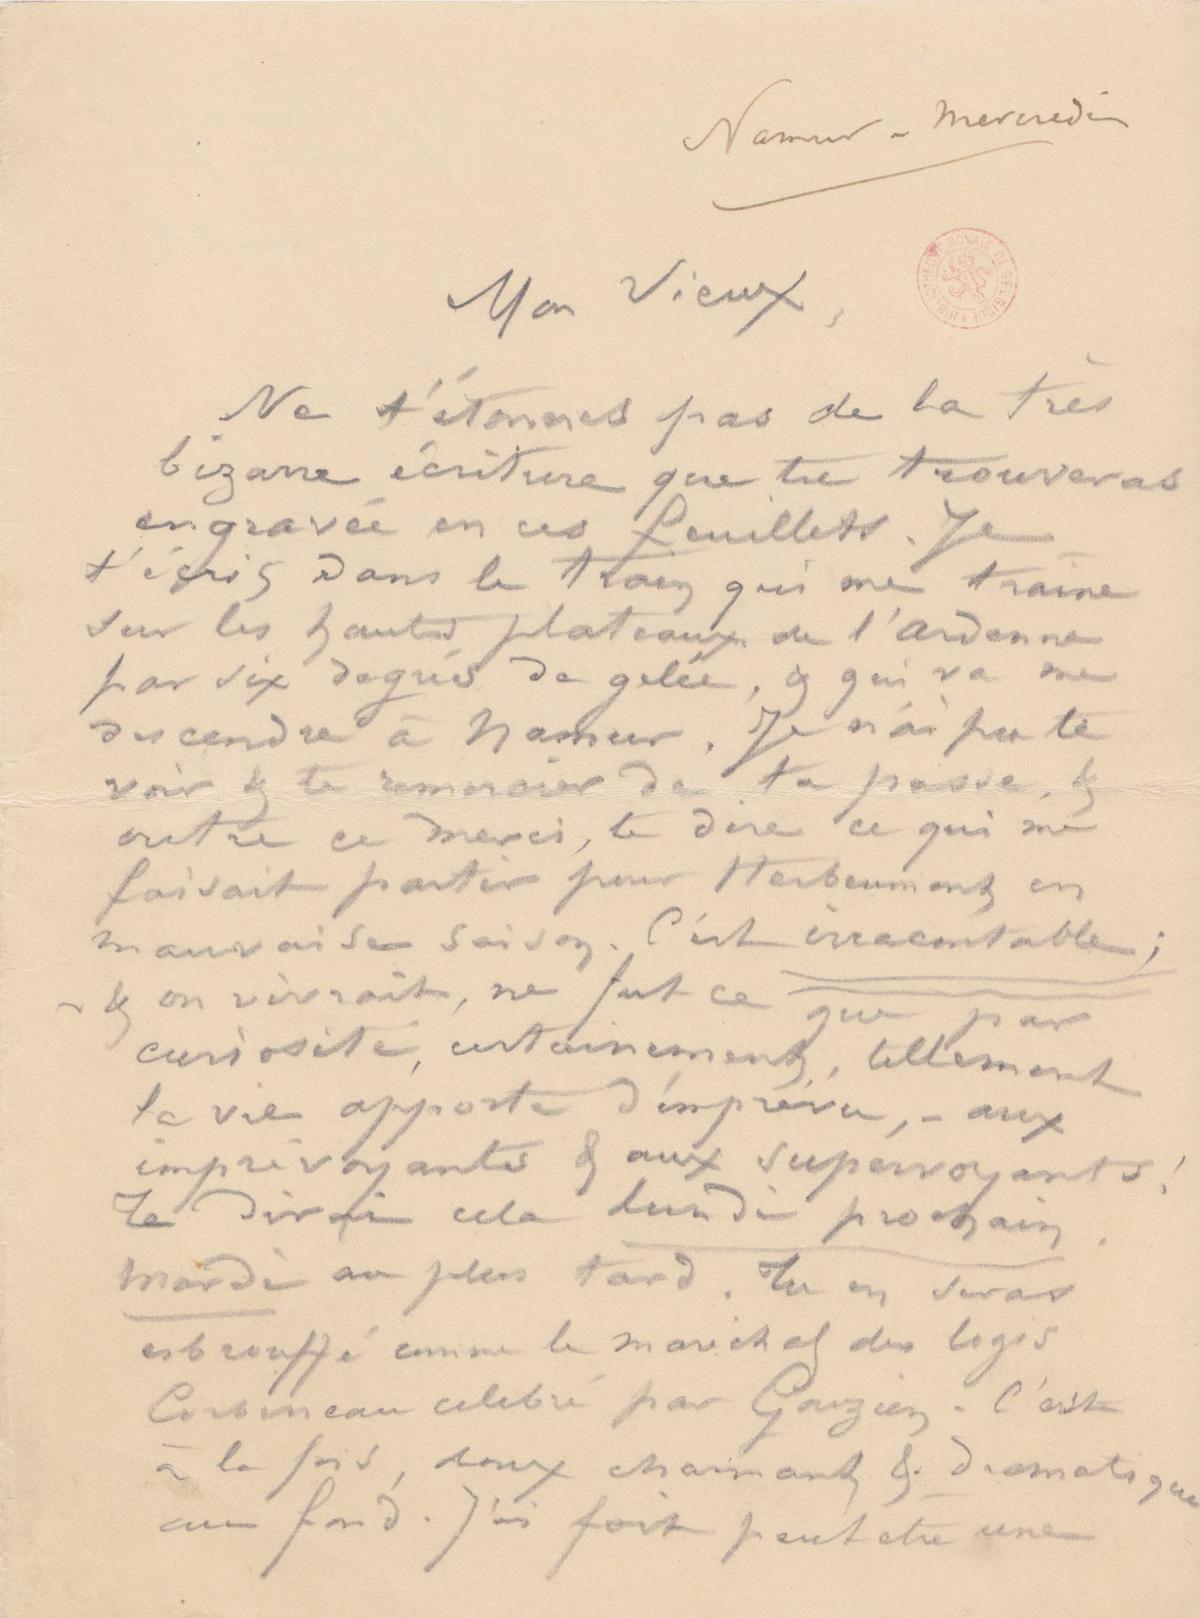 Namur - Mercredi
BIBLIOTHEQUE ROYALE DE BELGIQUE
Mon Vieux,
Ne t'étonnes pas de la très
bizarre écriture que tu trouveras
engravée en ces feuillets. Je
t'écris dans le train qui me traine
sur les hauts plateaux de l'Ardenne
par six degrés de gelée, & qui va me
descendre à Namur. Je n'ai pu te
voir & te remercier de ta passe, &
outre ce merci, te dire ce qui me
faisait partir pour Herbeumont en
mauvaise saison. C'est irracontable;
- & on vivrait, ne fut ce que par
curiosité, certainement, tellement
la vie apporte d'imprévu, - aux
imprévoyants & aux supervoyants!
Te dirai cela lundi prochain,
mardi au plus tard. Tu en seras
esbrouffé comme le maréchal des logis
Corbineau celebré par Gouzien. C'est
à la fois, doux charmant & dramatique
au fond. J'ai fait peut etre une